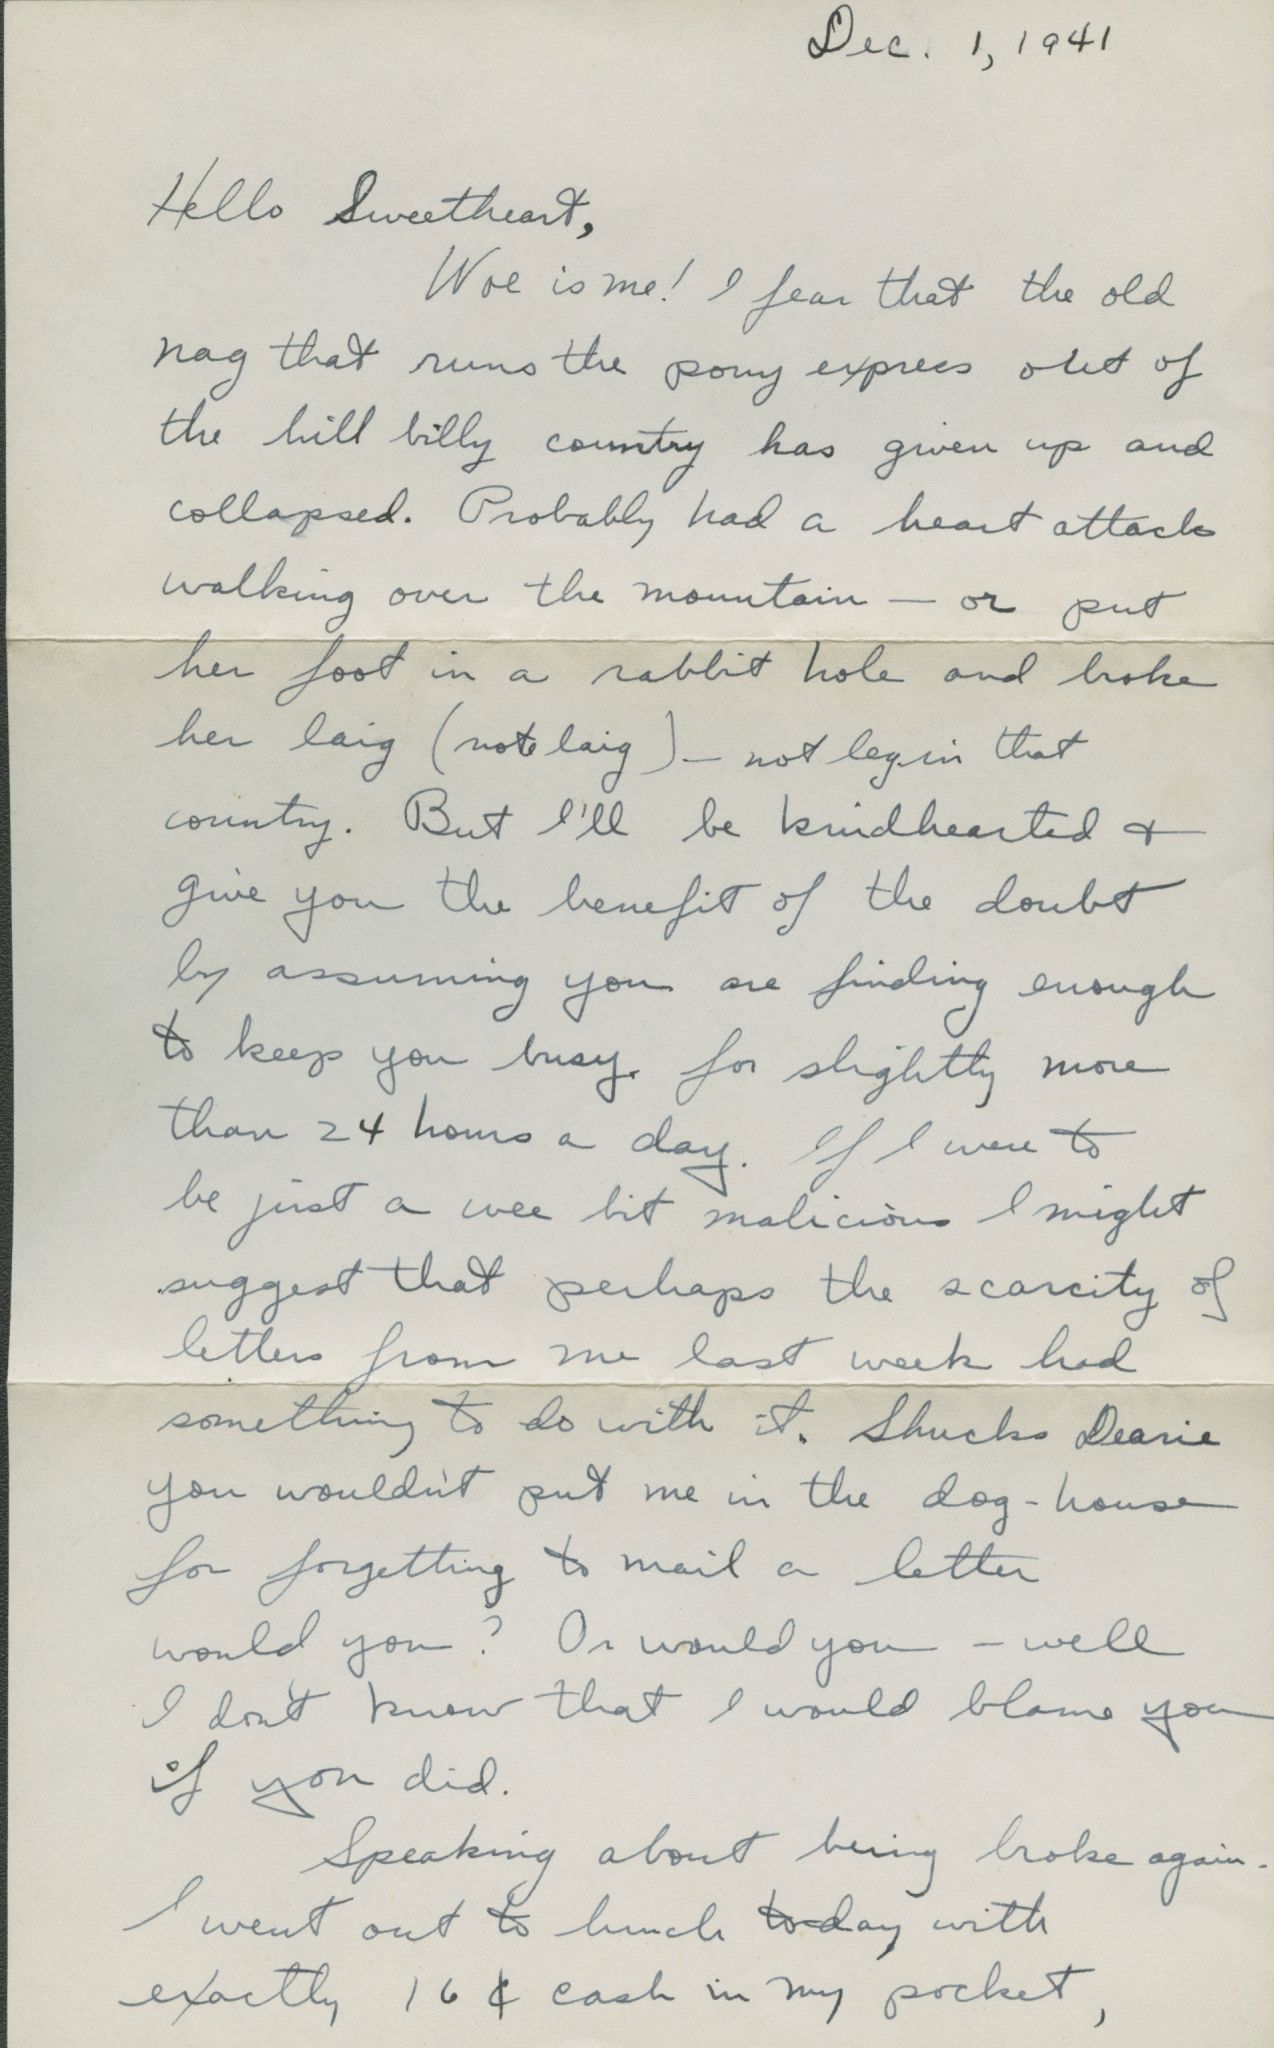 Dec. 1, 1941
Hello Sweetheart,
Woe is me! I fear that the old
nag that runs the pony express out of
the hill billy country has given up and
collapsed. Probably had a heart attack
walking over the mountain — or put
her foot in a rabbit hole and broke
her laig (note laig) — not leg in that
country. But I'll be kindhearted +
give you the benefit of the doubt
by assuming you are finding enough
to keep you busy. for slightly more
than 24 hours a day. If I were to
be just a wee bit malicious I might
suggest that perhaps the scarcity of
letters from me last week had
something to do with it. Shucks Dearie
you wouldn't put me in the dog-house
for forgetting to mail a letter
would you? Or would you — well
I don't know that I would blame you
if you did.
Speaking about being broke again -
I went out to lunch today with
exactly 16¢ cash in my pocket,